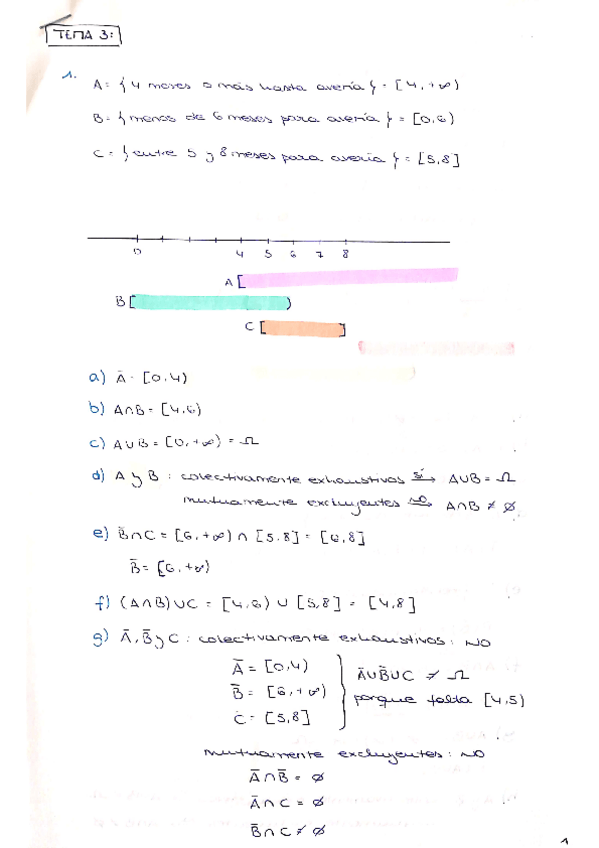 TEMA 3:
1.
A = { 4 meses o más hasta avería } = [4, +∞)
B = { menos de 6 meses para avería } = [0,6)
C = } entre 5 y 8 meses para avería } = [5,8]
0 4 5 6 7 8
A [
B [ )
C [ ]
a) Ā = [0,4)
b) A∩B = [4,6)
c) A∪B = [0, +∞) = Ω
d) A y B : colectivamente exhaustivos sí→ A∪B = Ω
mutuamente excluyentes no→ A∩B ≠ ∅
e) B̄∩C = [6, +∞) ∩ [5,8] = [6,8]
B̄ = [6, +∞)
f) (A∩B)∪C = [4,6) ∪ [5,8] = [4,8]
g) Ā, B̄ y C : colectivamente exhaustivos : NO
Ā = [0,4)
B̄ = [6, +∞)
C = [5,8]
Ā∪B̄∪C ≠ Ω
porque falta [4,5)
mutuamente excluyentes : NO
Ā∩B̄ = ∅
Ā∩C = ∅
B̄∩C ≠ ∅
1